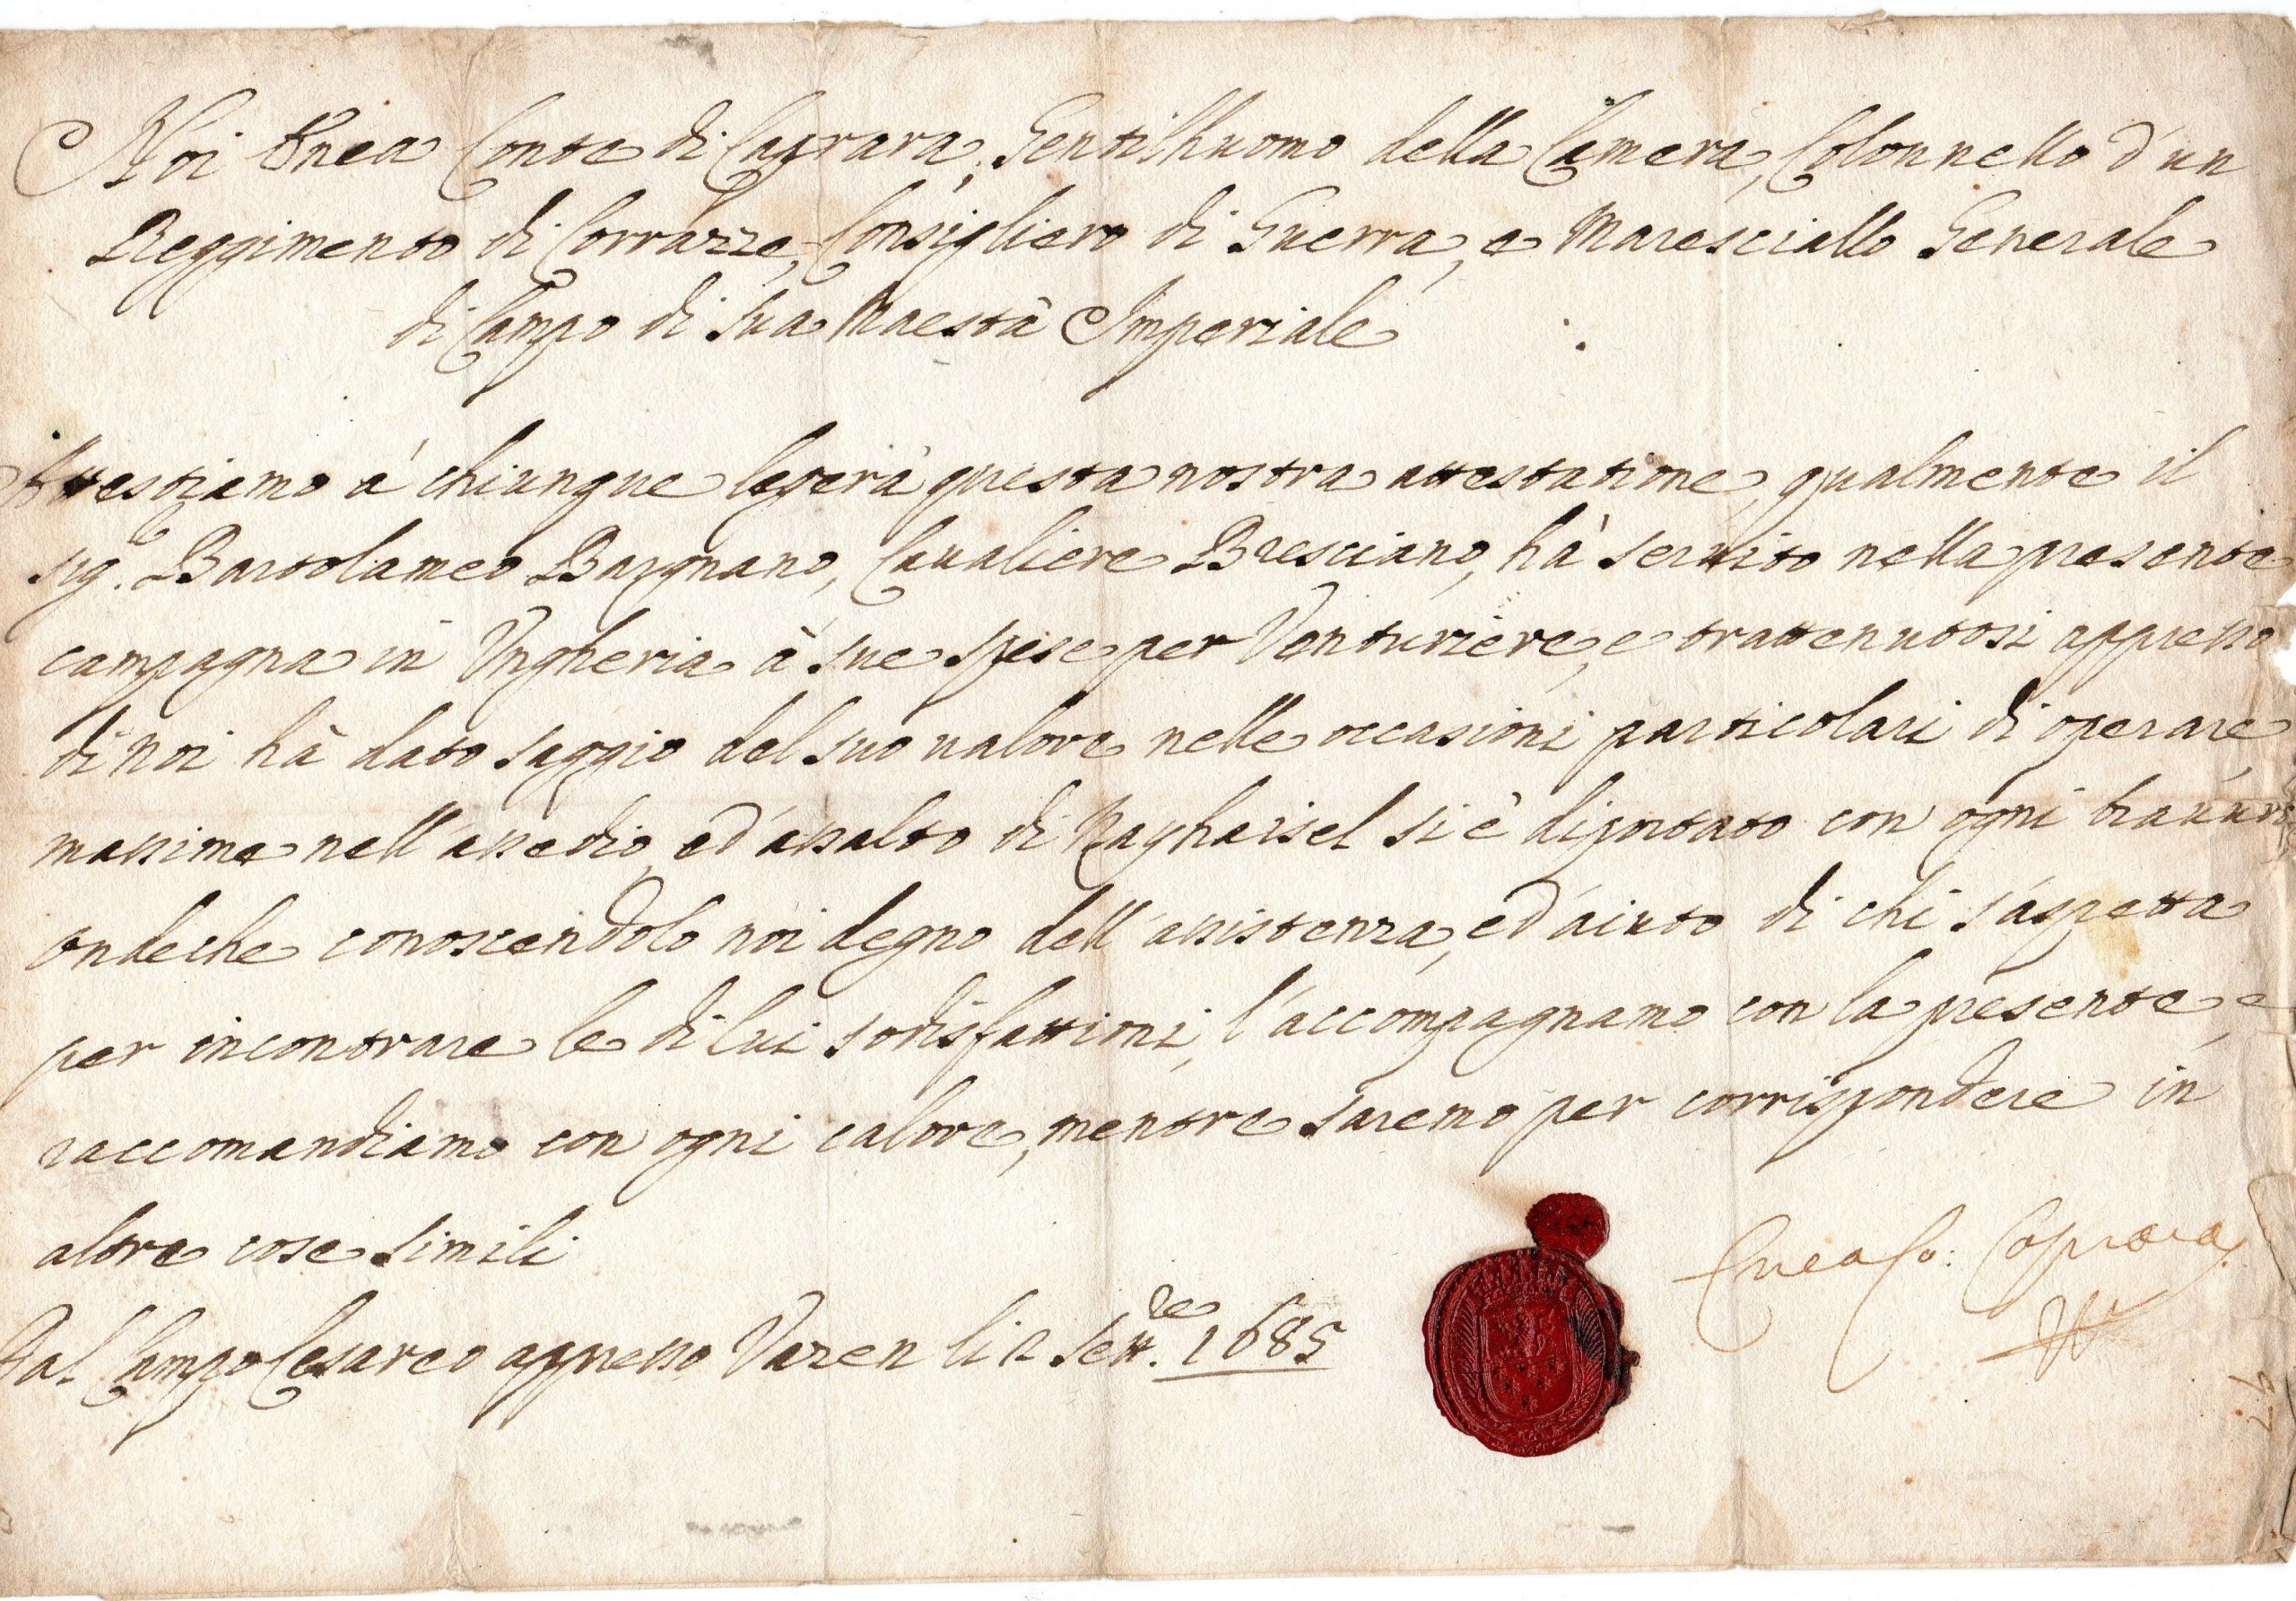 Noi Enea Conte di Caprara, Gentilhuomo della Camera, Colonnello d'un
Reggimento di Corrazze, Consigliero di Guerra, e Maresciallo Generale
di Campo di Sua Maestà Imperiale
Attestiamo à chiunque legerà questa nostra attestatione, qualmente il
sig.r Bartolameo Bargnano, Caualiere Bresciano, hà seruito nella presente
campagna in Ungheria à sue spese per Venturiere, e trattenutosi appresso
di noi hà dato saggio del suo ualore nelle occasioni particolari di operare,
massime nell'assedio, ed'assalto di Nayhaisel si è diportato con ogni brauura
onde che conoscendolo noi degno dell'assistenza, ed'aiuto di chi s'aspetta
per incontrare le di lui sodisfattioni, l'accompagnamo con la presente, e
raccomandiamo con ogni calore, mentre saremo per corrispondere in
altre cose simili
Dal Campo Cesareo appresso Vazen li 2 Sett.re 1685
Enea Co: Caprara